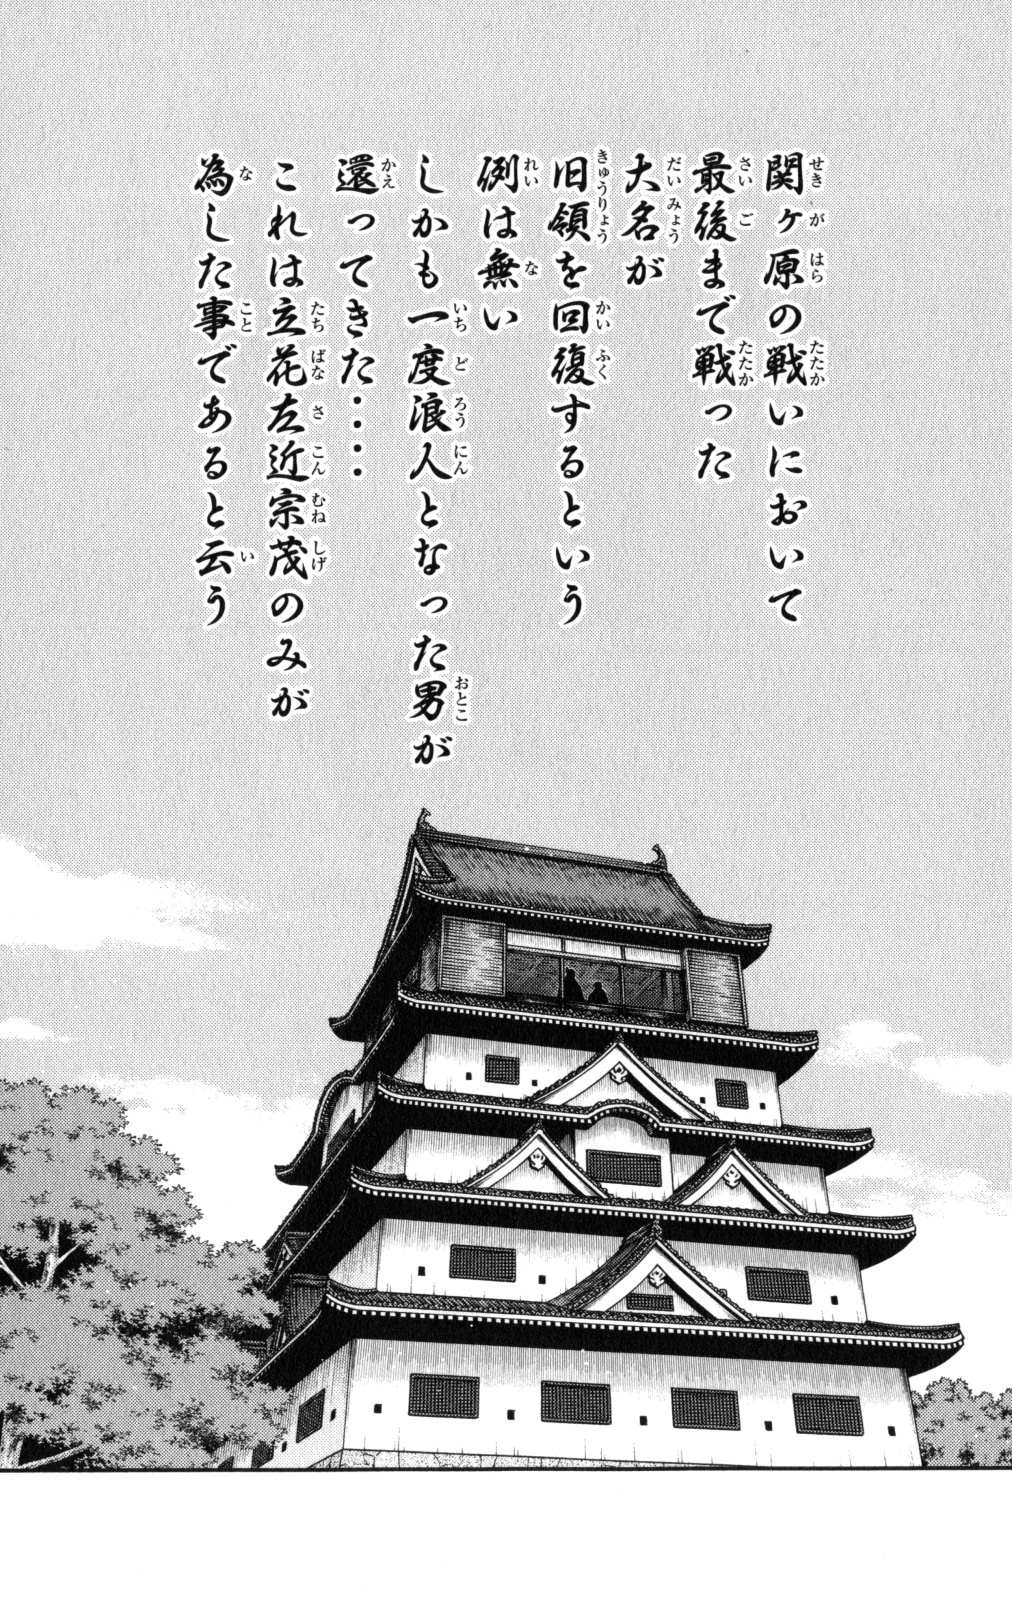 関ヶ原の戦いにおいて
最後まで戦った
大名が
旧領を回復するという
例は無い
しかも一度浪人となった男が
還ってきた‥‥
これは立花左近宗茂のみが
為した事であると云う